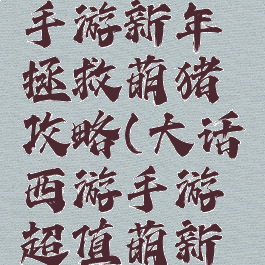 手游新年
拯救萌猪
攻略(大话
西游手游
超值萌新